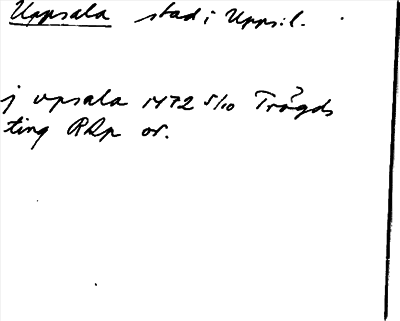 Uppsala stad i Uppsi l.
j upsala 1472 5/10 Trögds
ting RAp or.